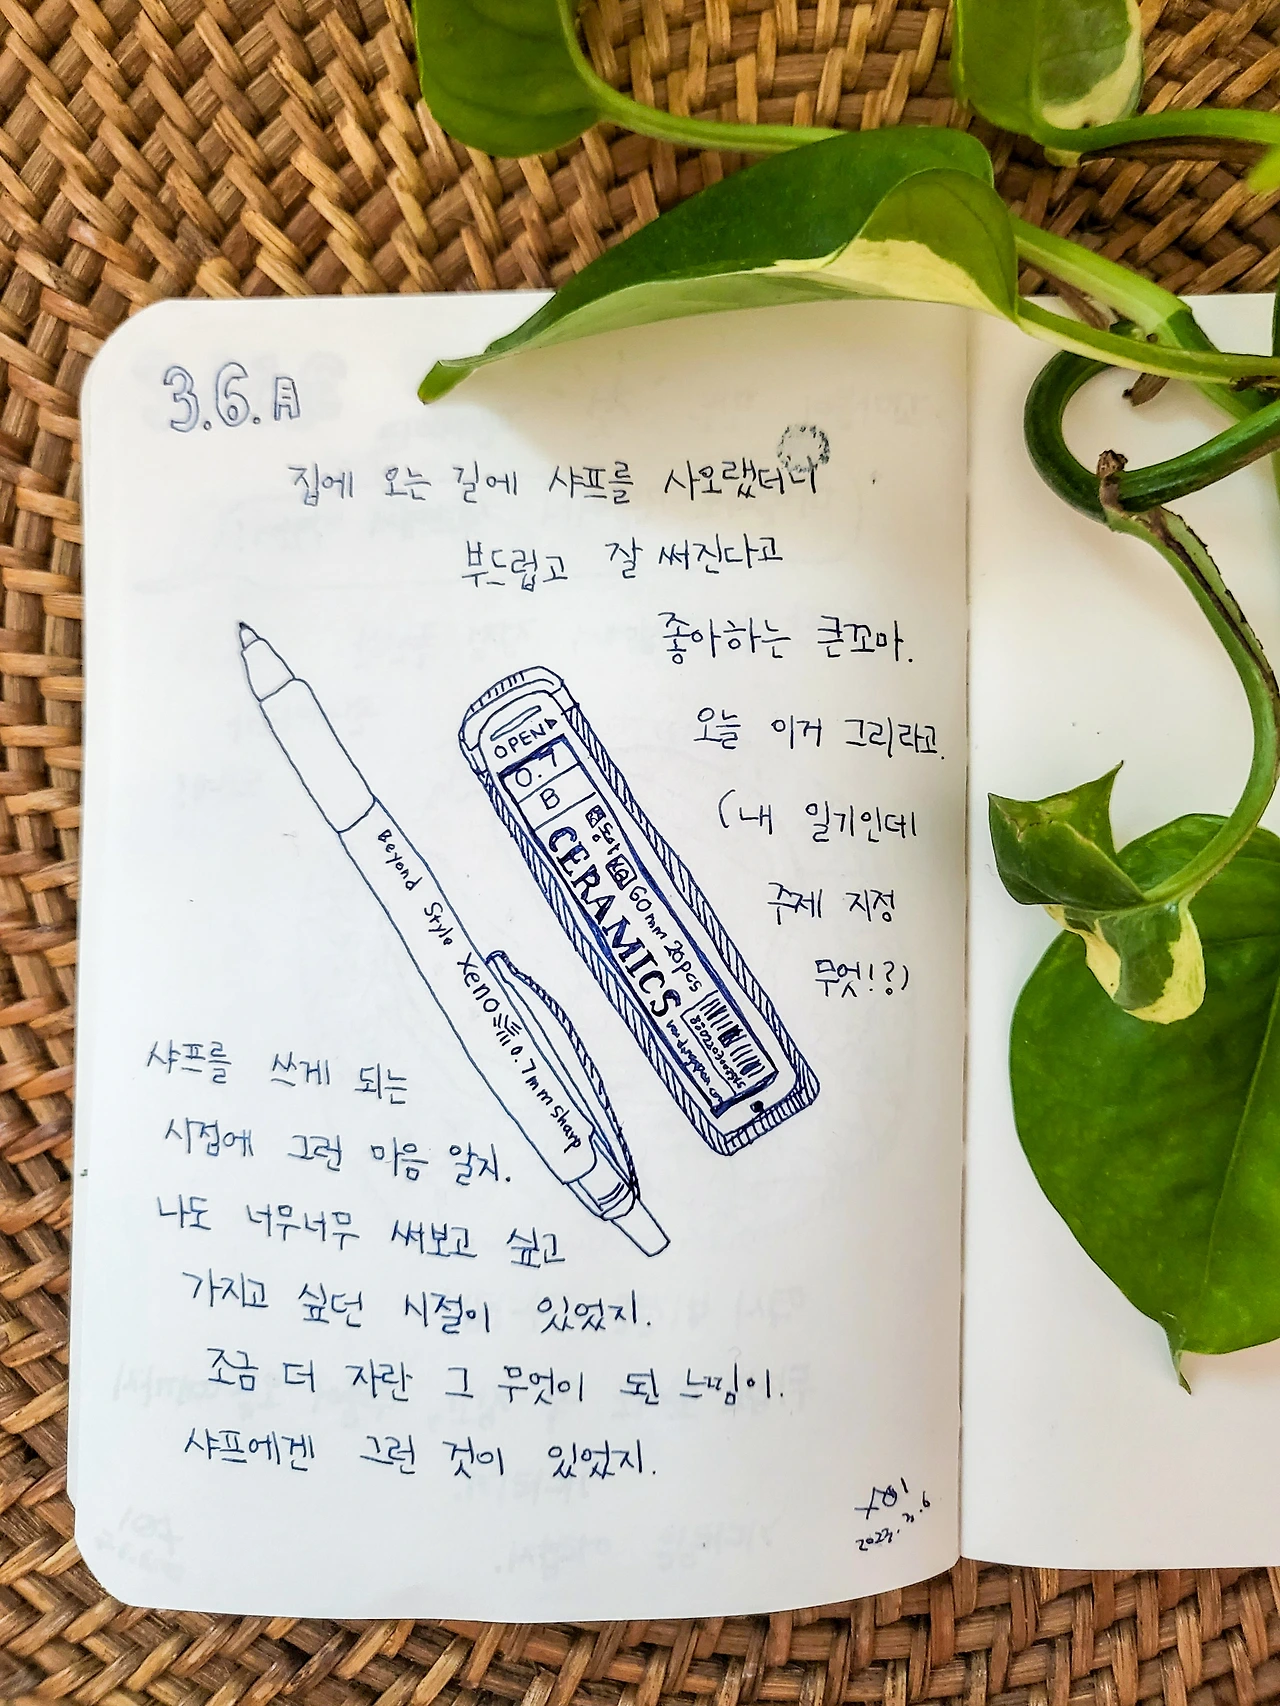 3.6.月
집에 오는 길에 샤프를 사오랬더니
부드럽고 잘 써진다고
좋아하는 큰꼬마.
오늘 이거 그리라고.
(내 일기인데
주제 지정
무엇!?)
OPEN
0.7
B
CERAMICS
60mm 20pcs
Beyond Style Xeno 0.7mm Sharp
샤프를 쓰게 되는
시점에 그런 마음 알지.
나도 너무너무 써보고 싶고
가지고 싶던 시절이 있었지.
조금 더 자란 그 무엇이 된 느낌이.
샤프에겐 그런 것이 있었지.
2023.3.6